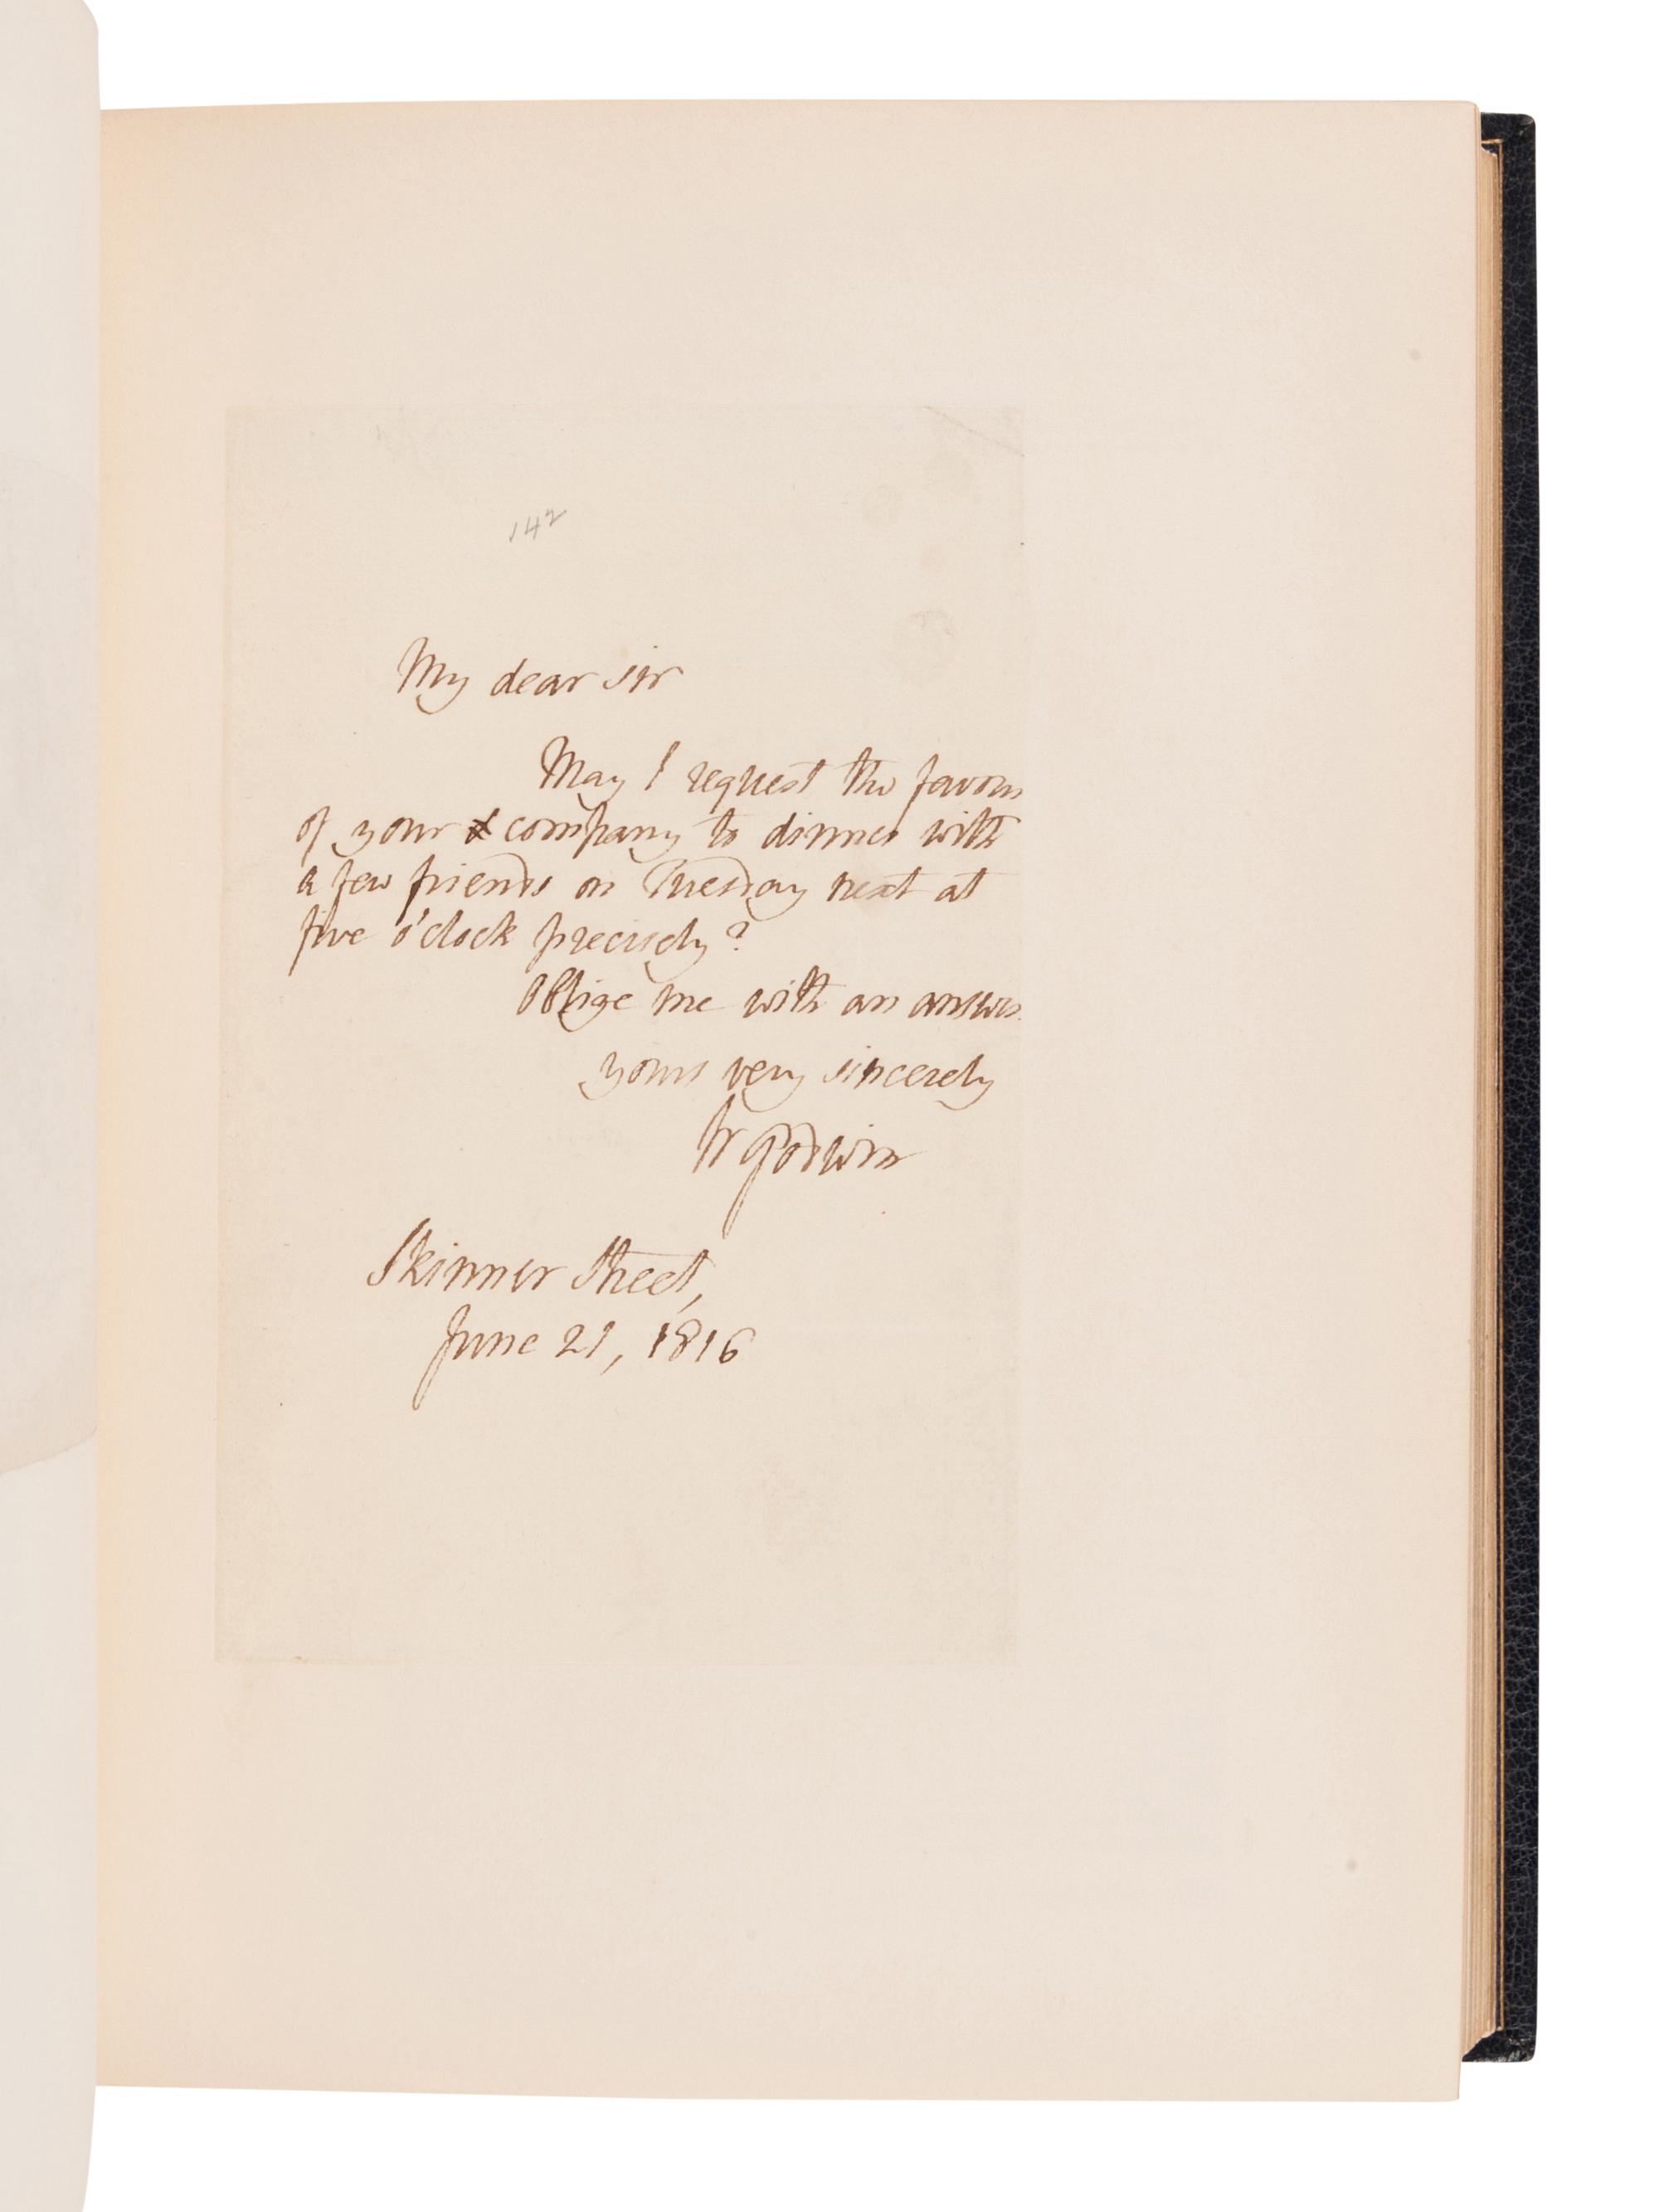 142
My dear sir
May I request the favour
of your company to dinner with
a few friends on Tuesday next at
five o'clock precisely?
Oblige me with an answer.
yours very sincerely
W Godwin
Skinner Street,
June 21, 1816